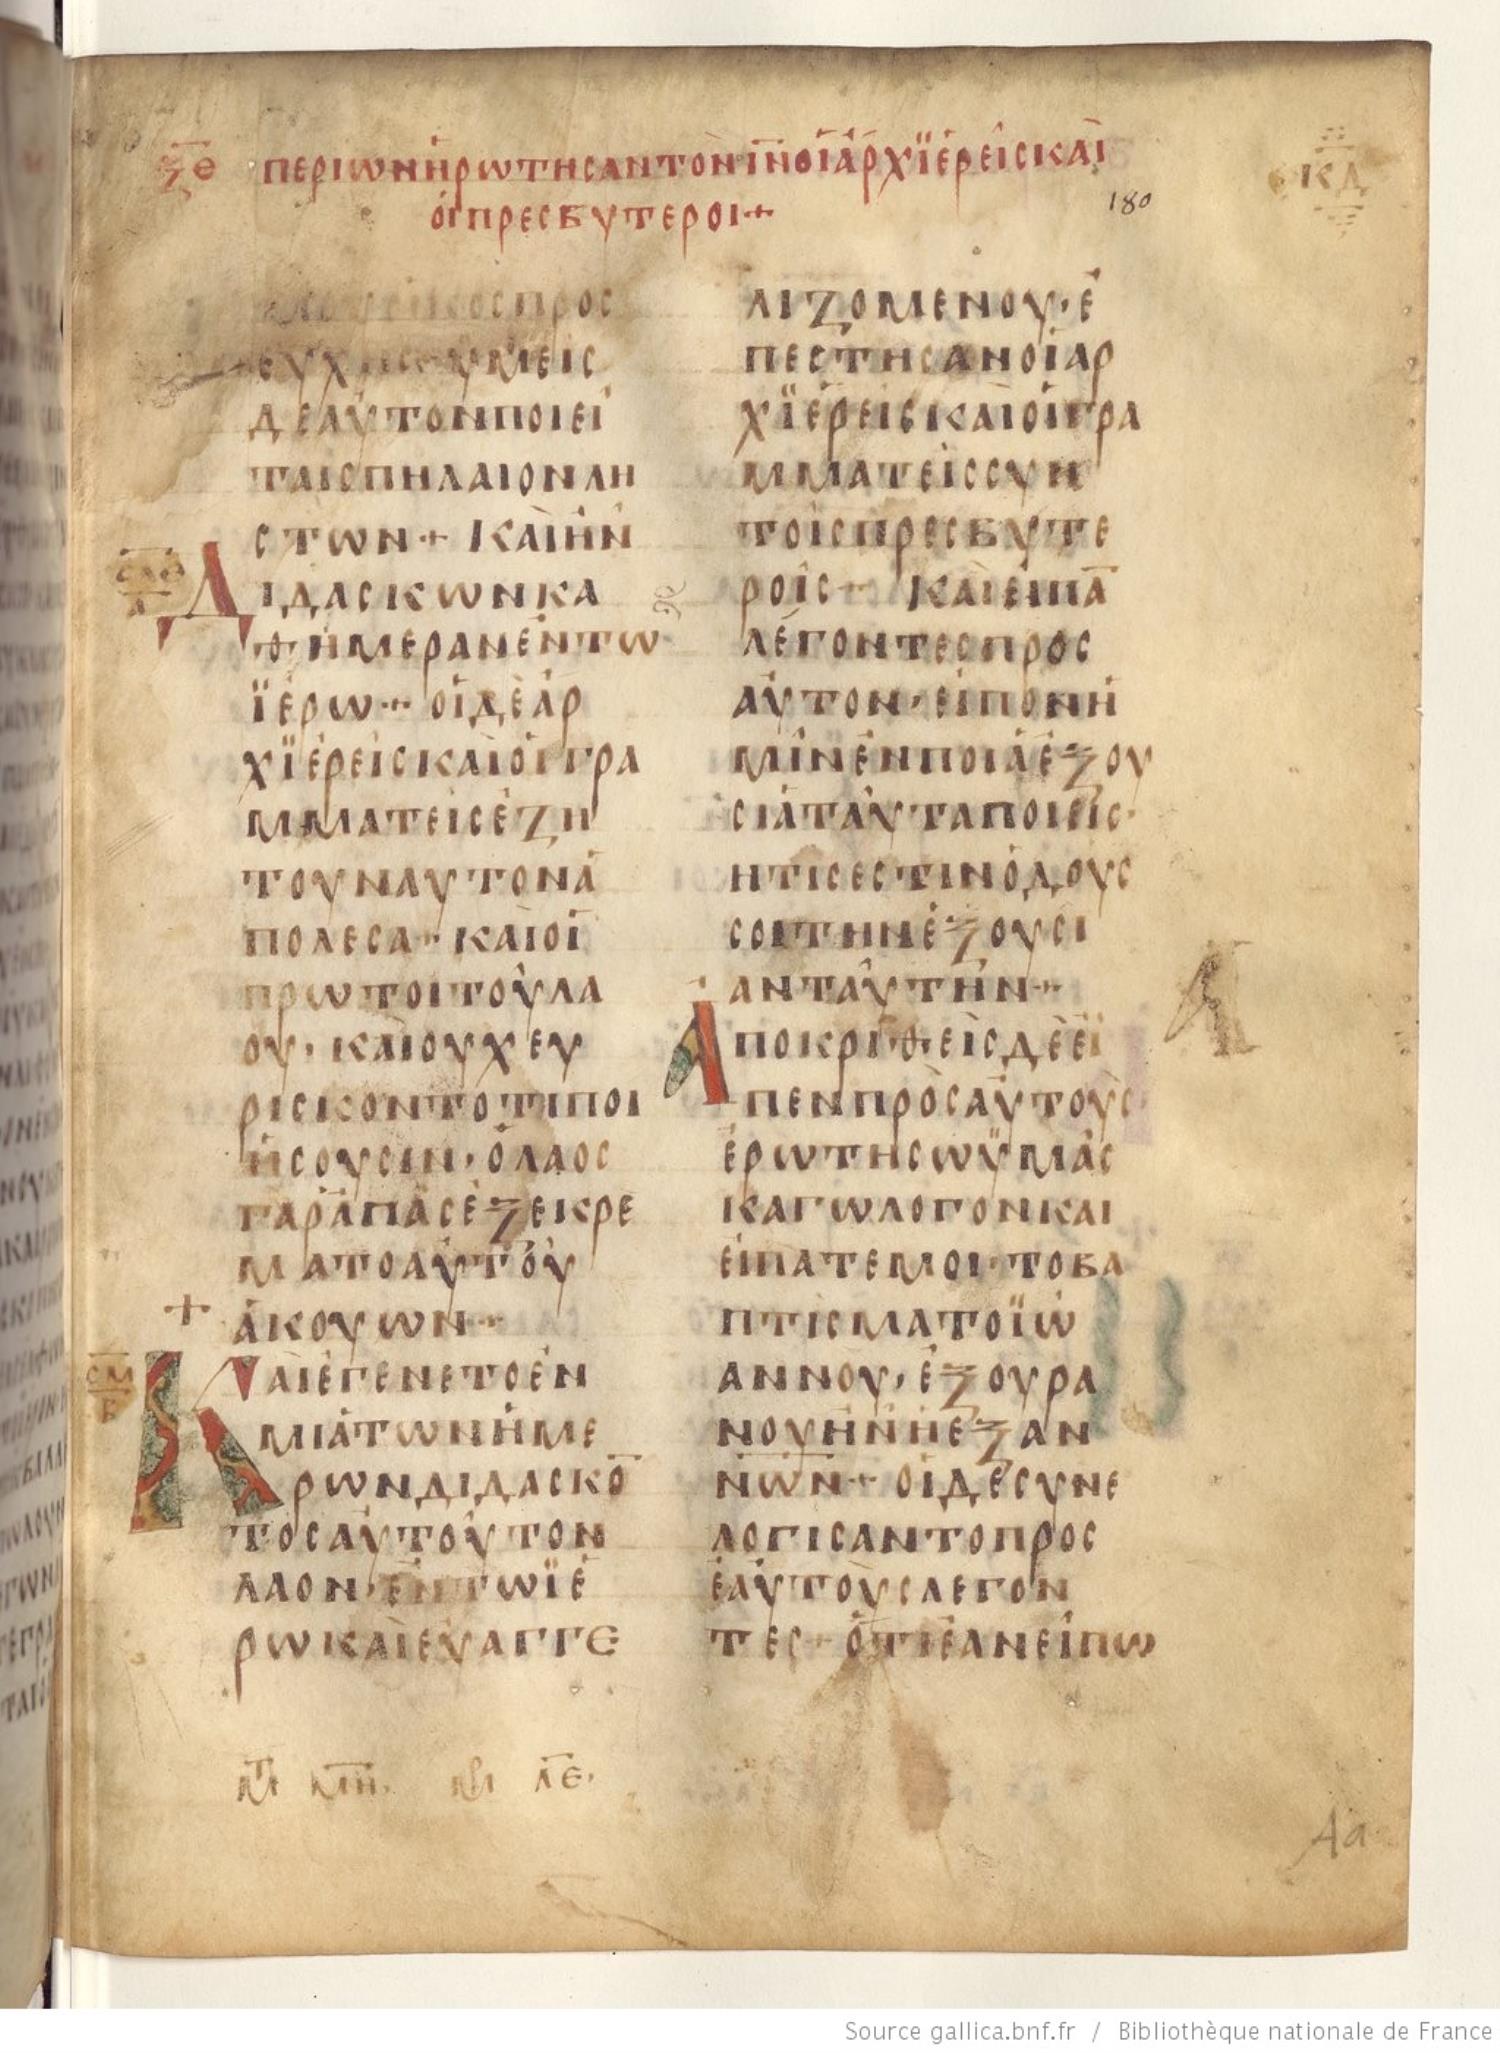 ξθ περιωνηρωτησαντονιν̅οιαρχϊερεισκαι
οιπρεσβυτεροι+
κδ
180
οσπροσ
ευχησ· υμεισ
δεαυτονποιει
ταισπηλαιονλη
στων+ καιην
διδασκωνκα
θημερανεντω
ϊερω+ οιδεαρ
χϊερεισκαιοιγρα
μματεισεζη
τουναυτονα
πολεσα· καιοι
πρωτοιτουλα
ου· καιουχευ
ρισκοντοτιποι
ησουσιν· ολαοσ
γαραπασεξεκρε
ματοαυτου
ακουων+
σμ
β
καιεγενετοεν
μιατωνημε
ρωνδιδασκο̅
τοσαυτουτον
λαον· εντωϊε
ρωκαιευαγγε
λιζομενου· ε
πεστησανοιαρ
χϊερεισκαιοιγρα
μματεισσυν
τοισπρεσβυτε
ροισ+ καιειπα̅
λεγοντεσπροσ
αυτον· ειπονη
μινενποιαεξου
σιαταυταποιεισ·
ητισεστινοδουσ
σοιτηνεξουσι
ανταυτην+
αποκριθεισδεεϊ
πενπροσαυτουσ
ερωτησωϋμασ
καγωλογονκαι
ειπατεμοι· τοβα
πτισματοϊω
αννου· εξουρα
νουηνηεξαν
ν̅ων̅+ οιδεσυνε
λογισαντοπροσ
εαυτουσλεγον
τεσ· οτιεανειπω
λε·
Aa
Source gallica.bnf.fr / Bibliothèque nationale de France